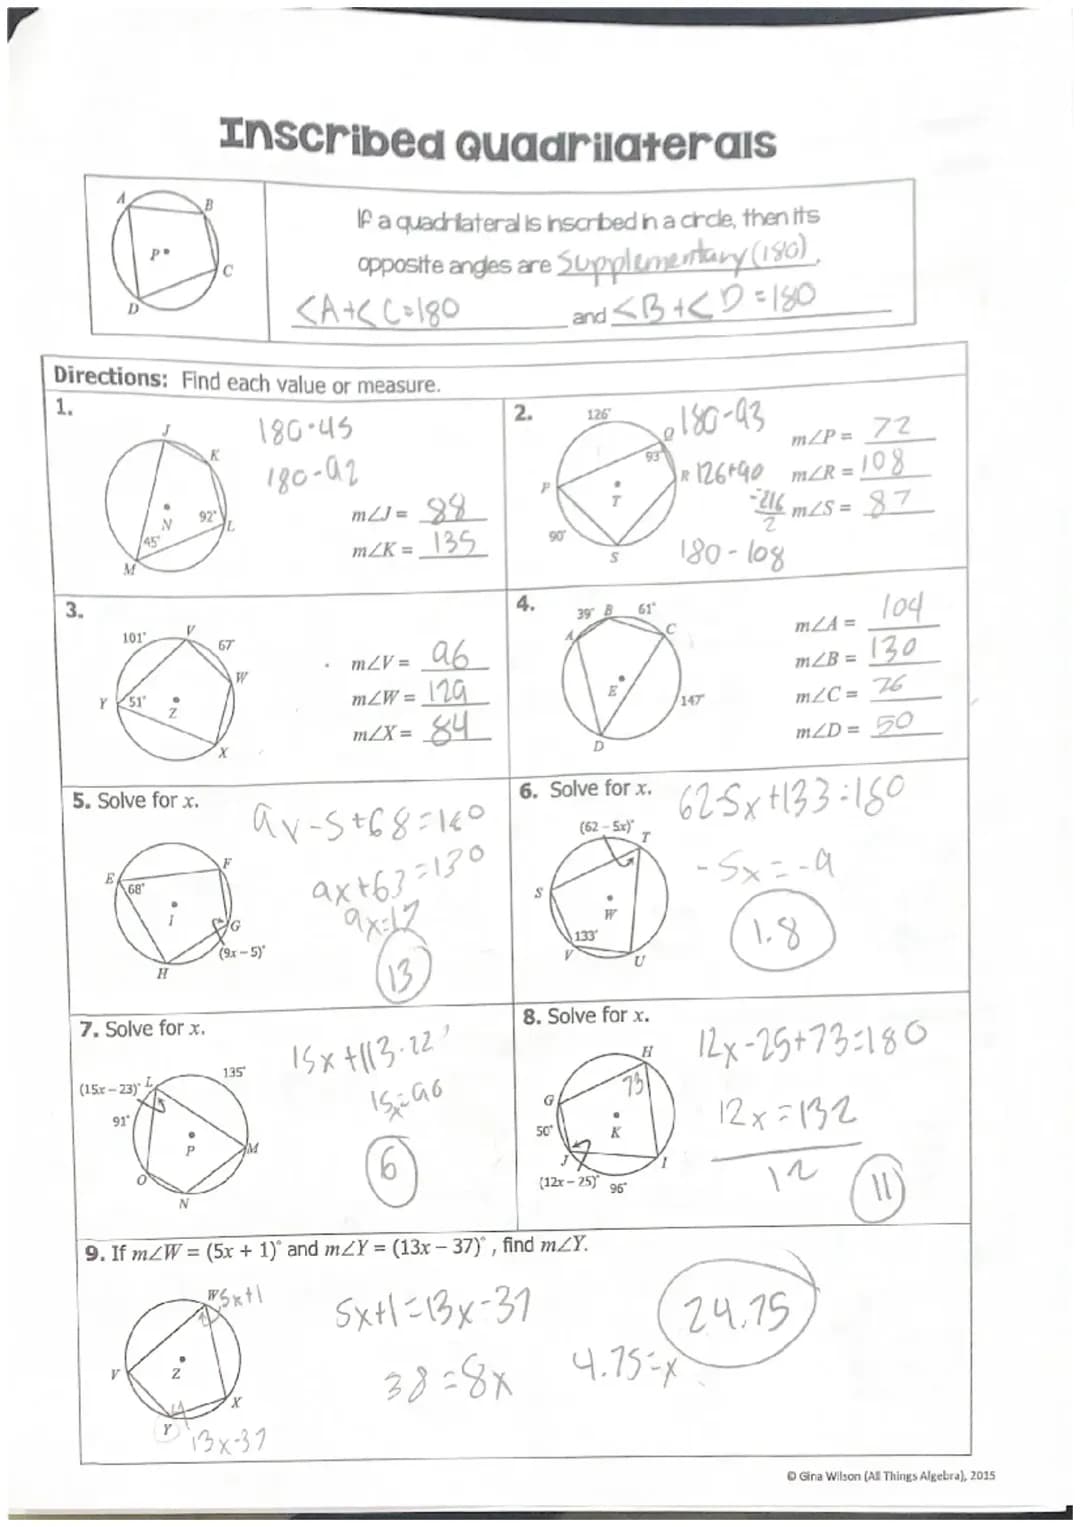 Inscribed Quadrilaterals
A
B
P
C
D
If a quadrilateral is inscribed in a circle, then its
opposite angles are Supplementary (180).
<A+<C=180 and <B+<D=180
Directions: Find each value or measure.
1.
J
K
N
92°
L
45°
M
180-45
180-92
m∠J = 88
m∠K = 135
2.
126°
Q
93°
P
R
T
90°
S
180-93
126+90
=216
2
180-108
m∠P = 72
m∠R = 108
m∠S = 87
3.
101°
V
67°
W
Y
51°
Z
X
m∠V = 96
m∠W = 129
m∠X = 84
4.
39°
B
61°
A
C
E
147°
D
m∠A = 104
m∠B = 130
m∠C = 76
m∠D = 50
5. Solve for x.
E
F
68°
I
G
(9x – 5)°
H
9x-5+68=180
9x+63=180
9x=17
13
6. Solve for x.
(62 – 5x)°
T
S
W
133°
V
U
62-5x+133=180
-5x=-9
1.8
7. Solve for x.
(15x – 23)°
L
135°
91°
P
M
O
N
15x+113-22
15x=96
6
8. Solve for x.
H
73
G
50°
K
J
I
(12x – 25)°
96°
12x-25+73=180
12x=132
12
11
9. If m∠W = (5x + 1)° and m∠Y = (13x – 37)°, find m∠Y.
W 5x+1
V
Z
X
Y
13x-37
5x+1=13x-37
38=8x
4.75=x
24.75
© Gina Wilson (All Things Algebra), 2015